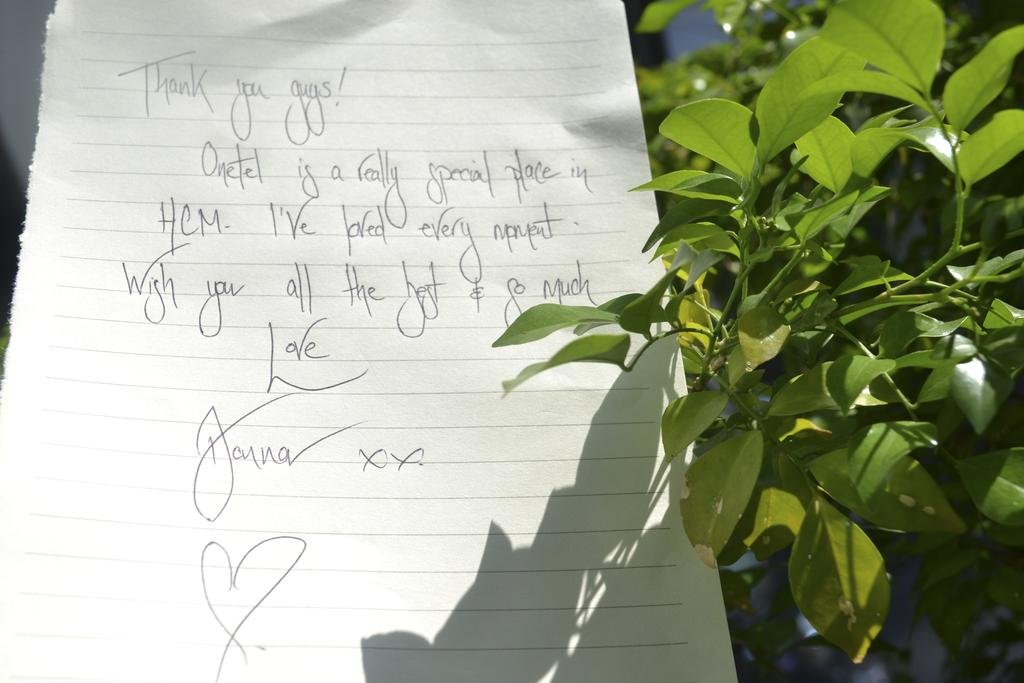 Thank you guys!
Onetel is a really special place in
HCM. I've loved every moment.
Wish you all the best & so much
Love
Hanna xx.